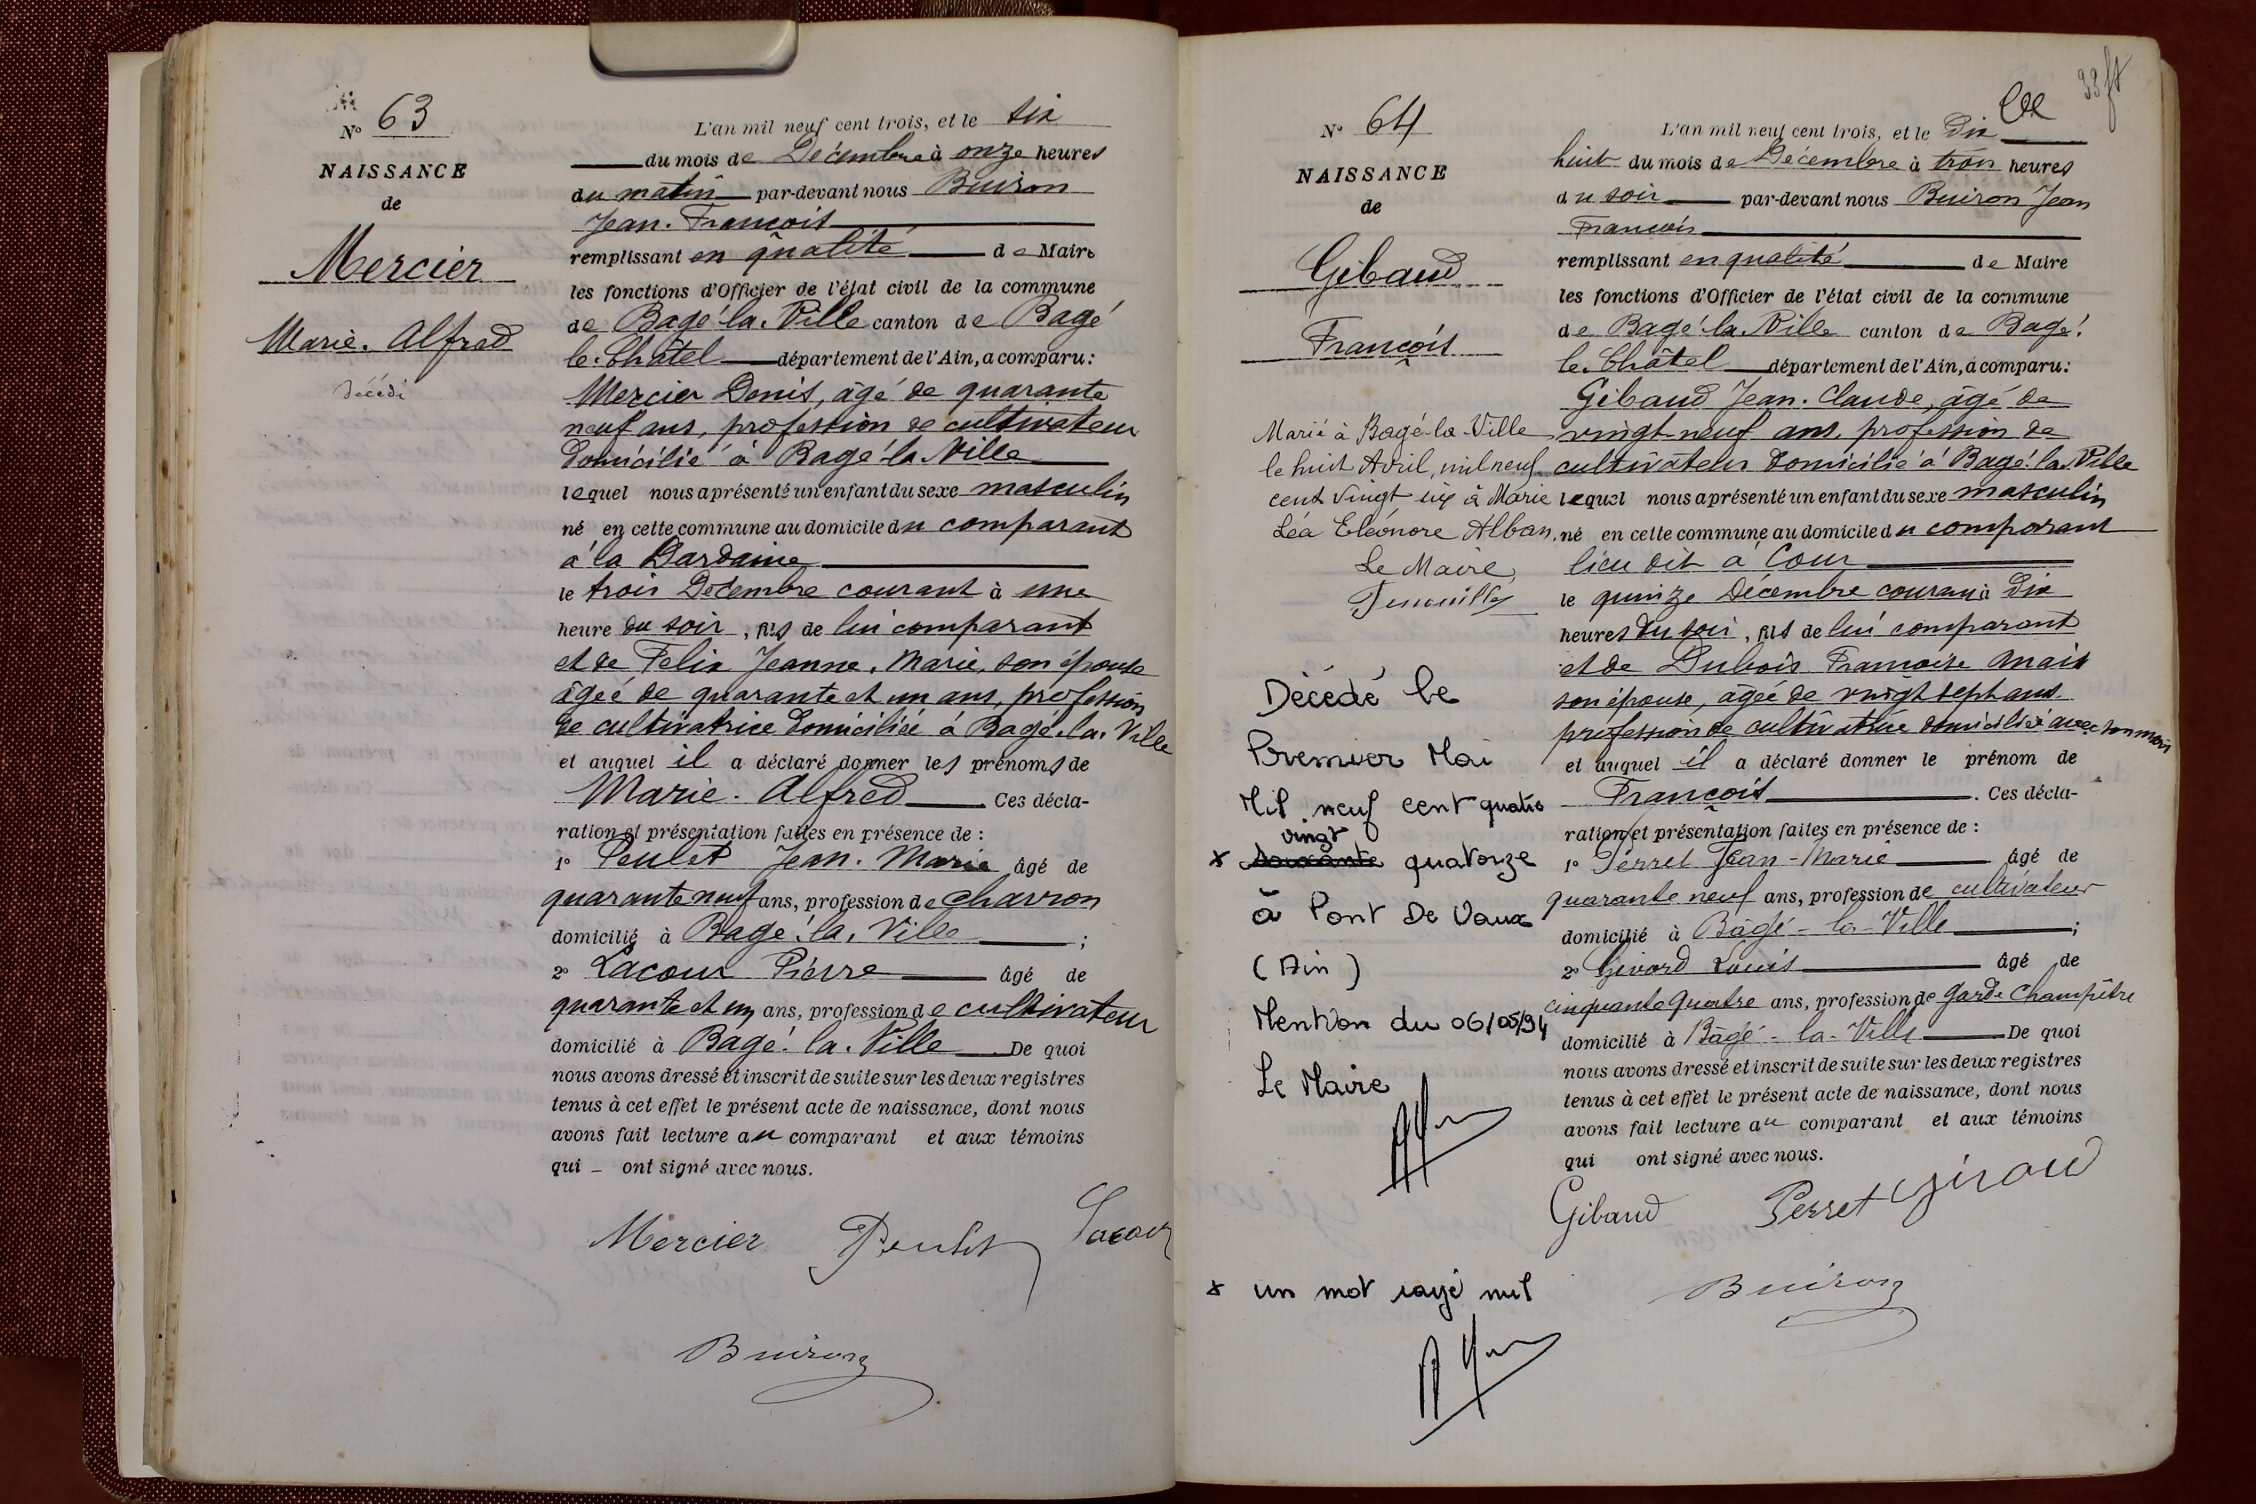 N° 63
NAISSANCE
de
Mercier
Marie. Alfred
Décédé
L'an mil neuf cent trois, et le six
du mois de Décembre à onze heures
du matin par-devant nous Buiron
Jean. François
remplissant en qualité de Maire
les fonctions d'Officier de l'état civil de la commune
de Bagé-la. Ville canton de Bagé
le. Châtel département de l'Ain, a comparu :
Mercier Denis, âgé de quarante
neuf ans, profession de cultivateur
domicilié à Bagé-la Ville
lequel nous a présenté un enfant du sexe masculin
né en cette commune au domicile du comparant
à la Dardaine
le trois Décembre courant à une
heure du soir, fils de lui comparant
et de Felix Jeanne. Marie, son épouse
âgée de quarante et un ans, profession
de cultivatrice domiciliée à Bagé. la. Ville
et auquel il a déclaré donner les prénoms de
Marie. Alfred Ces décla-
ration et présentation faites en présence de :
1° Peulet Jean. Marie âgé de
quarante neuf ans, profession de charron
domicilié à Bagé. la. Ville ;
2° Lacour Pierre âgé de
quarante et un ans, profession de cultivateur
domicilié à Bagé. la. Ville De quoi
nous avons dressé et inscrit de suite sur les deux registres
tenus à cet effet le présent acte de naissance, dont nous
avons fait lecture au comparant et aux témoins
qui – ont signé avec nous.
Mercier Peulet Lacour
Buiron
N° 64
NAISSANCE
de
Gibaud
François
Marié à Bagé-la-Ville
le huit Avril, mil neuf
cent vingt six à Marie
Léa Eléonore Alban.
Le Maire,
Décédé le
Premier Mai
Mil neuf cent quatre
vingt
* soixante quatorze
à Pont De Vaux
(Ain)
Mention du 06/05/94
Le Maire
* un mot rayé nul
L'an mil neuf cent trois, et le Dix
huit du mois de Décembre à trois heures
du soir par-devant nous Buiron Jean
François
remplissant en qualité de Maire
les fonctions d'Officier de l'état civil de la commune
de Bagé-la. Ville canton de Bagé.
le. Châtel département de l'Ain, a comparu :
Gibaud Jean. Claude, âgé de
vingt-neuf ans, profession de
cultivateur domicilié à Bagé. la. Ville
lequel nous a présenté un enfant du sexe masculin
né en cette commune au domicile du comparant
lieu dit à Cour
le quinze Décembre courant à Dix
heures du soir, fils de lui comparant
et de Dubois Françoise Marie
son épouse, âgée de vingt sept ans.
profession de cultivatrice domiciliée avec son mari
et auquel il a déclaré donner le prénom de
François. Ces décla-
ration et présentation faites en présence de :
1° Perret Jean-Marie âgé de
quarante neuf ans, profession de cultivateur
domicilié à Bâgé-la-Ville ;
2° Givord Louis âgé de
cinquante quatre ans, profession de garde champêtre
domicilié à Bâgé-la-Ville De quoi
nous avons dressé et inscrit de suite sur les deux registres
tenus à cet effet le présent acte de naissance, dont nous
avons fait lecture au comparant et aux témoins
qui ont signé avec nous.
Gibaud Perret
Buiron